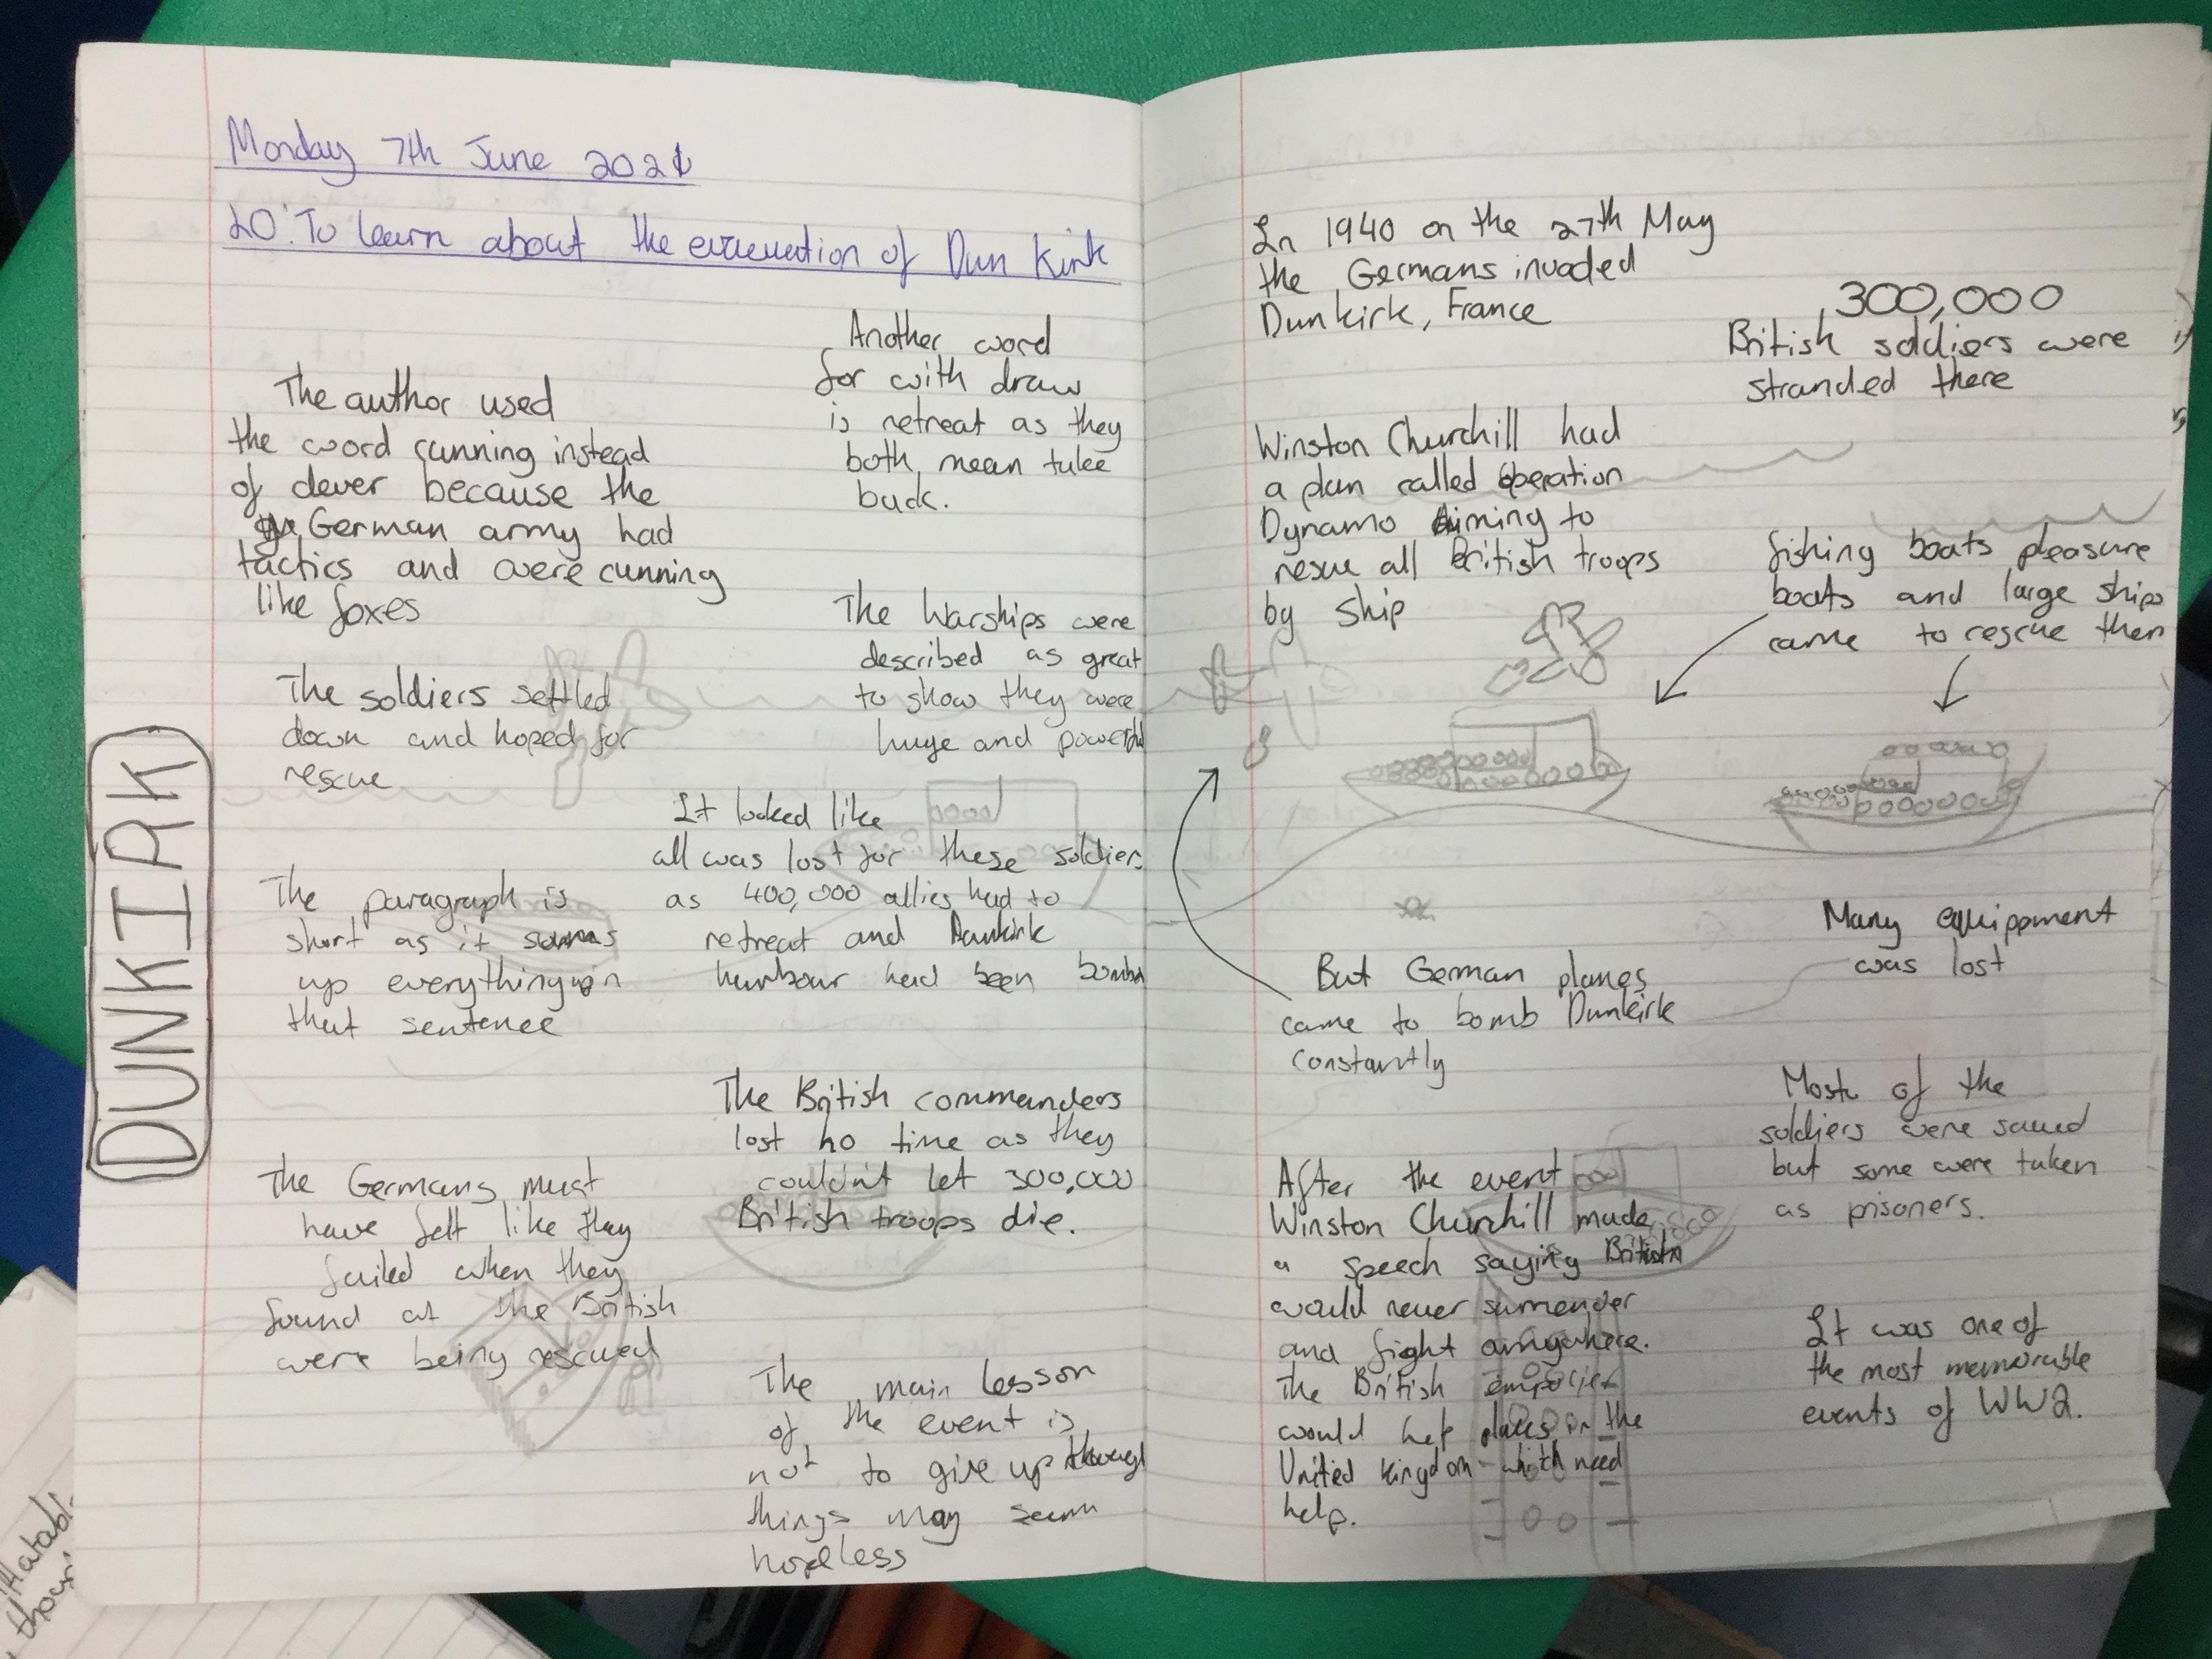 Monday 7th June 2021
LO: To learn about the evacuation of Dun Kirk
DUNKIRK
The author used
the word cunning instead
of clever because the
German army had
tactics and were cunning
like foxes
Another word
for with draw
is retreat as they
both mean take
back.
The soldiers settled
down and hoped for
rescue
The Warships were
described as great
to show they were
huge and powerful
It looked like
all was lost for these soldiers
as 400,000 allies had to
retreat and Dunkirk
harbour had been bombed
The paragraph is
short as it sums
up everything in
that sentence
The British commanders
lost no time as they
couldn't let 300,000
British troops die.
The Germans must
have felt like they
failed when they
found at the British
were being rescued
The main lesson
of the event is
not to give up though
things may seem
hopeless
In 1940 on the 27th May
the Germans invaded
Dunkirk, France
300,000
British soldiers were
stranded there
Winston Churchill had
a plan called Operation
Dynamo Aiming to
rescue all British troops
by ship
fishing boats pleasure
boats and large ships
came to rescue them
But German planes
came to bomb Dunkirk
constantly
Many equippment
was lost
Most of the
soldiers were saved
but some were taken
as prisoners.
After the event
Winston Churchill made
a speech saying
would never surrender
and fight anywhere.
The British
would help places in the
United kingdom need
help.
It was one of
the most memorable
events of WW2.